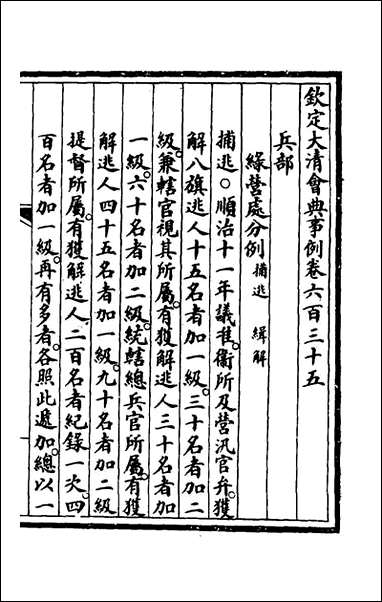 欽定大清會典事例卷六百三十五
兵部
綠營處分例 捕逃 緝解
捕逃○順治十一年議准。衞所及營汛官弁獲
解八旗逃人十五名者加一級。三十名者加二
級。兼轄官視其所屬。有獲解逃人三十名者加
一級。六十名者加二級。統轄總兵官所屬。有獲
解逃人四十五名者加一級。九十名者加二級
提督所屬。有獲解逃人二百名者紀錄一次。四
百名者加一級。再有多者。各照此遞加。總以一